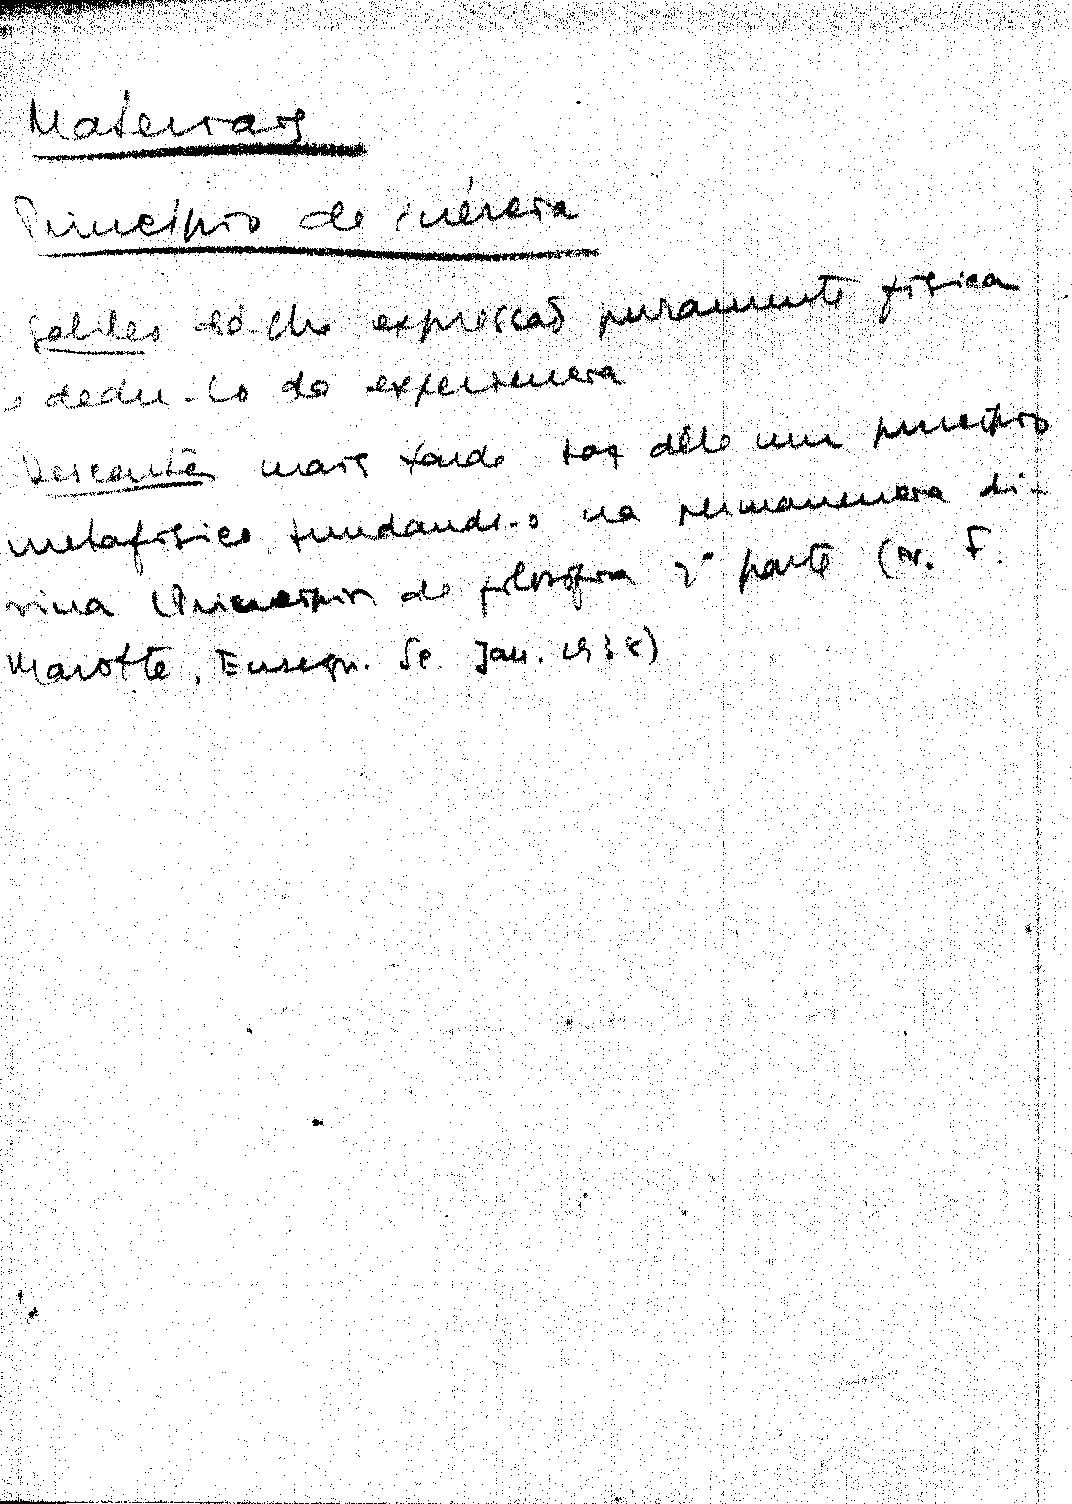 Materiais
Princípio de inércia
Galileo dá-lhe expressão puramente física
e dedu-lo da experiencia
Descartes mais tarde faz dêle um principio
metafisico fundando-o na permanencia di-
vina (Principios de filosofia 2ª parte (cr. F.
Marotte, Enseign. Sc. Jan. 1938)